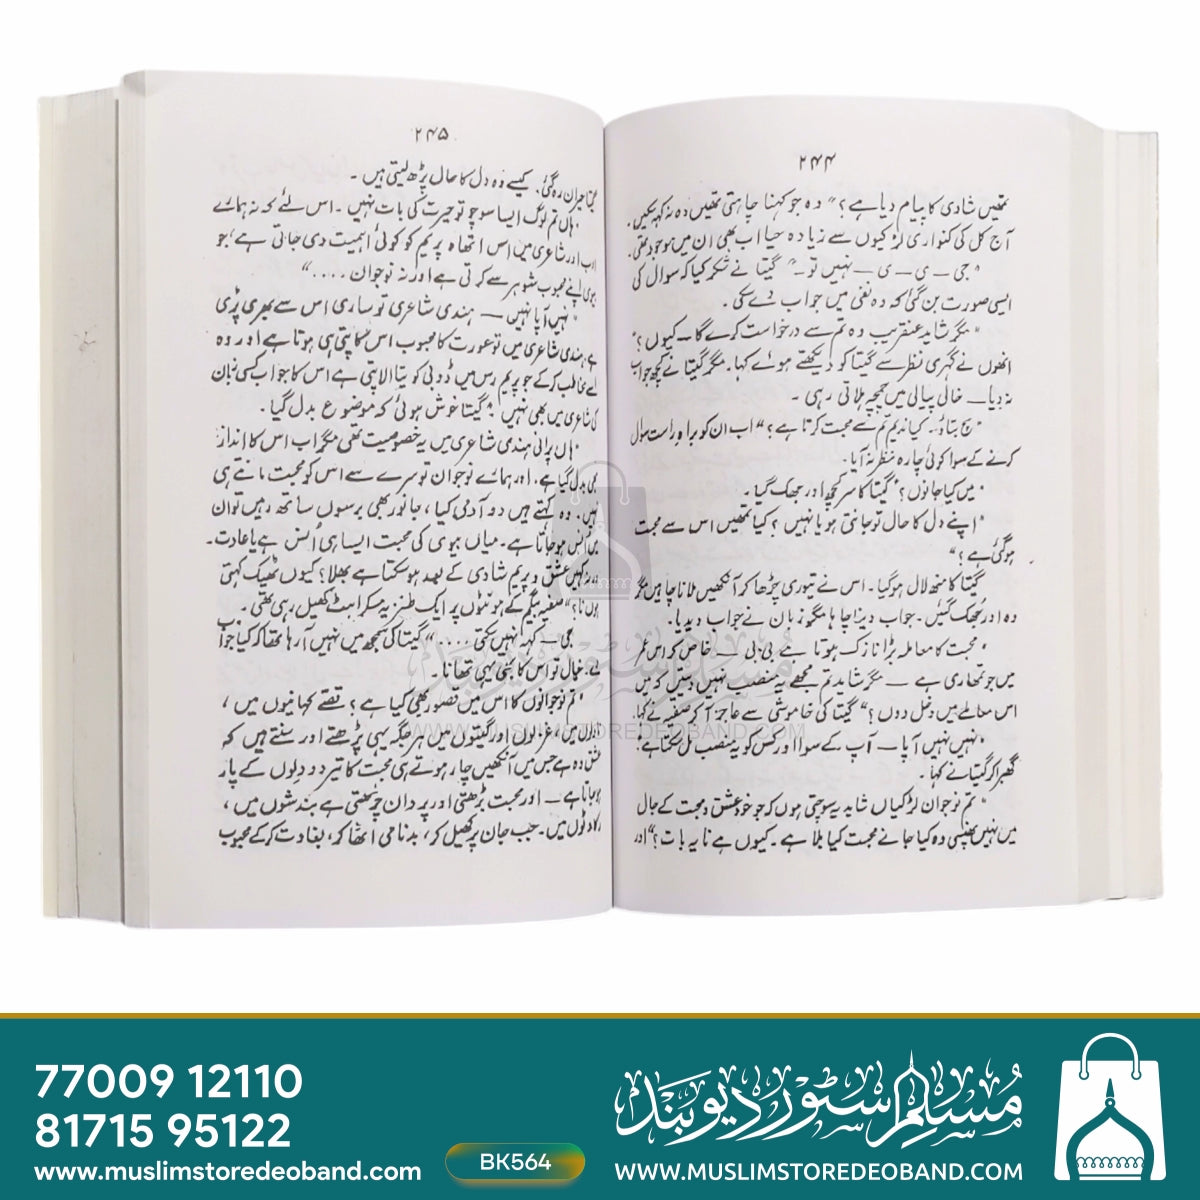 ۲۴۴
تمھیں شادی کا پیام دیا ہے؟" وہ جو کہنا چاہتی تھیں وہ نہ کہہ سکیں۔
آج کل کی کنواری لڑکیوں سے زیادہ حیا اب بھی ان میں موجود تھی۔
"جی — ی — ی — نہیں تو۔" گیتا نے شکر کیا کہ سوال کی
ایسی صورت بن گئی کہ وہ نفی میں جواب دے سکی۔
"مگر شاید عنقریب وہ تم سے درخواست کرے گا۔ کیوں؟"
انھوں نے گہری نظر سے گیتا کو دیکھتے ہوئے کہا۔ مگر گیتا نے کچھ جواب
نہ دیا — خالی پیالی میں چمچہ ہلاتی رہی۔
"سچ بتاؤ۔ کیا ندیم تم سے محبت کرتا ہے؟" اب ان کو براہ راست سوال
کرنے کے سوا کوئی چارہ نظر نہ آیا۔
"میں کیا جانوں؟" گیتا کا سر کچھ اور جھک گیا۔
"اپنے دل کا حال تو جانتی ہو یا نہیں؟ کیا تمھیں اس سے محبت
ہو گئی ہے؟"
گیتا کا منھ لال ہو گیا۔ اس نے تیوری چڑھا کر آنکھیں ملانا چاہیں مگر
وہ اور جھک گئیں۔ جواب دینا چاہا مگر زبان نے جواب دیدیا۔
"محبت کا معاملہ بڑا نازک ہوتا ہے بی بی — خاص کر اس عمر
میں جو تمھاری ہے — مگر شاید تم مجھے یہ منصب نہیں دیتیں کہ میں
اس معاملے میں دخل دوں؟" گیتا کی خاموشی سے عاجز آ کر صفیہ نے کہا
"نہیں نہیں آپا — آپ کے سوا اور کس کو یہ منصب مل سکتا ہے"
گھبرا کر گیتا نے کہا۔
"تم نوجوان لڑکیاں شاید یہ سوچتی ہوں کہ جو خود عشق و محبت کے جال
میں نہیں پھنسی وہ کیا جانے محبت کیا بلا ہے۔ کیوں ہے نا یہ بات؟" اور
۲۴۵
گیتا حیران رہ گئی۔ کیسے وہ دل کا حال پڑھ لیتی ہیں۔
"ہاں تم لوگ ایسا سوچو تو حیرت کی بات نہیں۔ اس لئے کہ نہ ہمارے
ادب اور شاعری میں اس اتھاہ پریم کو کوئی اہمیت دی جاتی ہے، جو
بیوی اپنے محبوب شوہر سے کرتی ہے اور نہ نوجوان ...."
"نہیں آپا نہیں — ہندی شاعری تو ساری اس سے بھری پڑی
ہے ہندی شاعری میں تو عورت کا محبوب اس کا پتی ہی ہوتا ہے اور وہ
اسے مخاطب کر کے جو پریم رس میں ڈوبی کویتا الاپتی ہے اس کا جواب کسی زبان
کی شاعری میں بھی نہیں" گیتا خوش ہوئی کہ موضوع بدل گیا۔
"ہاں پرانی ہندی شاعری میں یہ خصوصیت تھی مگر اب اس کا انداز
بھی بدل گیا ہے۔ اور ہمارے نوجوان تو سرے سے اس کو محبت مانتے ہی
نہیں۔ وہ کہتے ہیں دو آدمی کیا، جانور بھی برسوں ساتھ رہیں تو ان
میں اُنس ہو جاتا ہے۔ میاں بیوی کی محبت ایسا ہی اُنس ہے یا عادت۔
ورنہ کہیں عشق و پریم شادی کے بعد ہو سکتا ہے بھلا؟ کیوں ٹھیک کہتی
ہوں نا؟" صفیہ بیگم کے ہونٹوں پر ایک طنزیہ مسکراہٹ کھیل رہی تھی۔
"جی — کہہ نہیں سکتی ...." گیتا کی سمجھ میں نہیں آ رہا تھا کہ کیا جواب
دے۔ خیال تو اس کا بھی یہی تھا نا۔
"تم نوجوانوں کا اس میں قصور بھی کیا ہے؟ قصے کہانیوں میں،
ناولوں میں، غزلوں اور گیتوں میں ہر جگہ یہی پڑھتے اور سنتے ہیں کہ
عشق وہ ہے جس میں آنکھیں چار ہوتے ہی محبت کا تیر دو دلوں کے پار
ہو جاتا ہے — اور محبت بڑھتی اور پروان چڑھتی ہے بندشوں میں،
رکاوٹوں میں۔ جب جان پر کھیل کر، بدنامی اٹھا کر، بغاوت کر کے محبوب
مسلم سٹور دیوبند
WWW.MUSLIMSTOREDEOBAND.COM
77009 12110
81715 95122
www.muslimstoredeoband.com
BK564
مسلم سٹور دیوبند
WWW.MUSLIMSTOREDEOBAND.COM